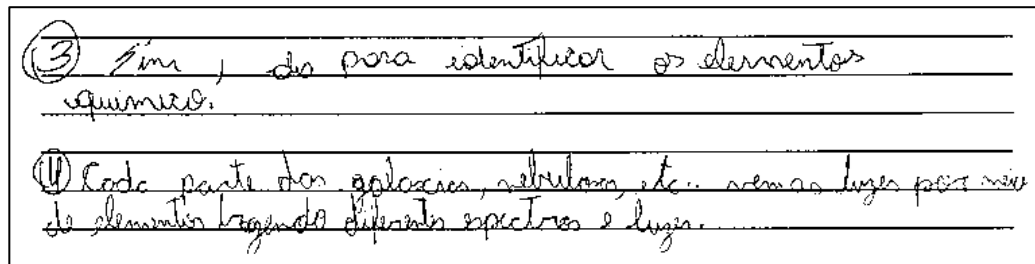 3 Sim, da para identificar os elementos
quimico.
4 Cada parte das galaxias, nebulosas, etc.. vem as luzes por meio
de elementos trazendo diferents espectros e luzes.